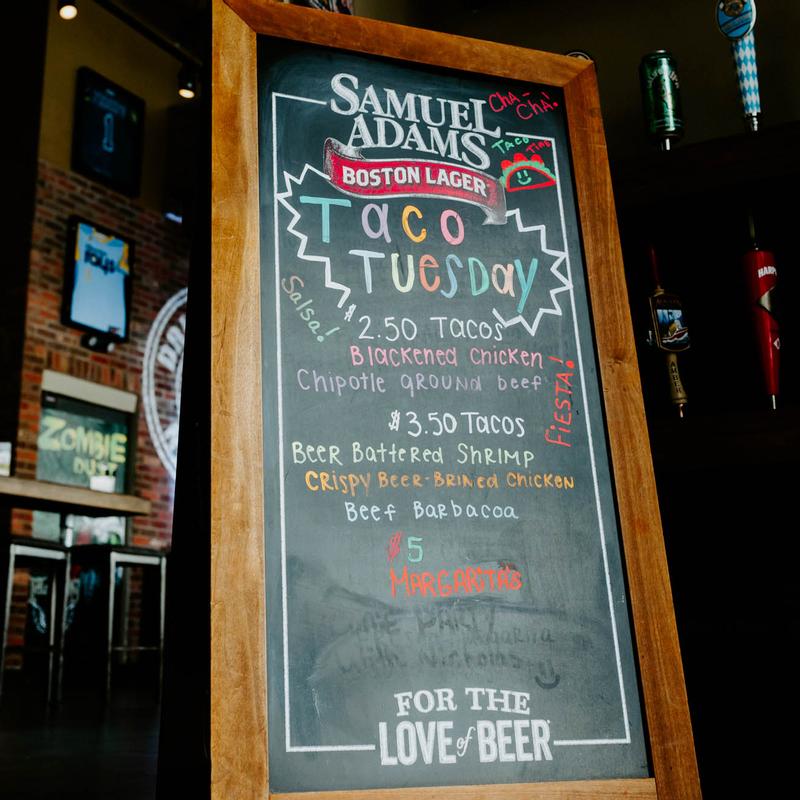 SAMUEL
ADAMS
BOSTON LAGER
CHA-
CHA!
TACO
TIME
TACO
TUESDAY
Salsa!
$2.50 TACOS
Blackened Chicken
Chipotle GROUND beef
FIESTA!
$3.50 Tacos
BEER BaTTERed SHRIMP
CRISPY BEER-BRINED CHICKEN
BEEF BaRbacoa
$5
MARGARITA'S
PARTY
FOR THE
LOVE of BEER
ZOMBIE
DUST
HARP
1